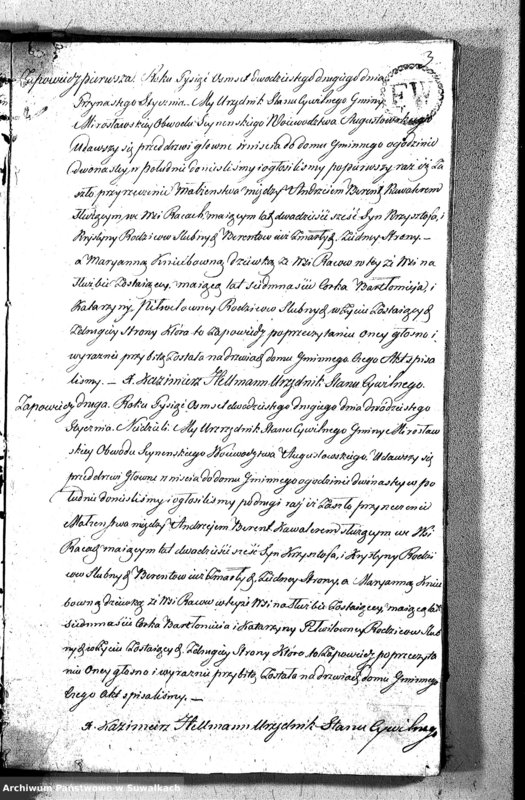 3
Zapowiedz pierwsza. Roku Tysiąc Osmset Dwodziestego drugiego dnia
Trzynastego Stycznia. My Urzędnik Stanu Cywilnego Gminy
Mirosławskiej Obwodu Seynenskiego Woiewodztwa Augustowskiego
Udawszy się przed drzwi głowne wniścia do domu Gminnego o godzinie
Dwonastey w południe donieslismy i ogłosilismy po pierwszy raz iż Za
szło przyrzeczenie Małżenstwa między Andrzeiem Berent Kawalerem
Służącym we Wsi Racach maiącym lat dwadzieścia sześć Syn Krzysztofa, i
Krystyny Rodzicow Slubnych Berentow iuż Zmarłych Ziedney Strony. —
a Maryanną Dziewką Ze Wsi Racow w tey że Wsi na
Służbie Zostaiącey, maiącą lat siedmnascie Corka Bartłomieia, i
Katarzyny Rodzicow Slubnych w Życiu Zostaiących
Zdrugiey Strony Ktora to Zapowiedz po przeczytaniu Oney głosno i
wyraznie przybitą Została na drzwiach domu Gminnego Czego Akt spisa
lismy. — X. Kazimierz Hellmann Urzędnik Stanu Cywilnego.
Zapowiedz druga. Roku Tysiąc Osmset dwodziestego drugiego dnia dwodziestego
Stycznia w Niedzieli My Urzędnik Stanu Cywilnego Gminy Mirosław
skiey Obwodu Seynenskiego Woiewodztwa Augustowskiego. Udawszy się
przed drzwi Głowne wniścia do domu Gminnego o godzinie dwonastey w po
łudnie donieslismy i ogłosilismy po drugi raz iż Zaszło przyrzeczenie
Małzenstwa między Andrzejem Berent Kawalerem służącym we Wsi
Racach maiącym lat dwadzieścia sześć Syn Krzysztofa, i Krystyny Rodzi
cow Slubnych Berentow iuż Zmarłych Ziedney Strony, a Maryanną
dziewką ze Wsi Racow w teyże Wsi na Służbie Zostaiącey, maiącą lat
siedmnascie Corka Bartłomieia i Katarzyny Rodzicow Slub
nych w Życiu Zostaiących. Zdrugiey Strony Ktora to Zapowiedz po przeczyta
niu Oney głosno i wyraznie przybitą Została na drzwiach domu Gminnego
Czego Akt spisalismy. —
X. Kazimierz Hellmann Urzędnik Stanu Cywilnego
Archiwum Państwowe w Suwałkach